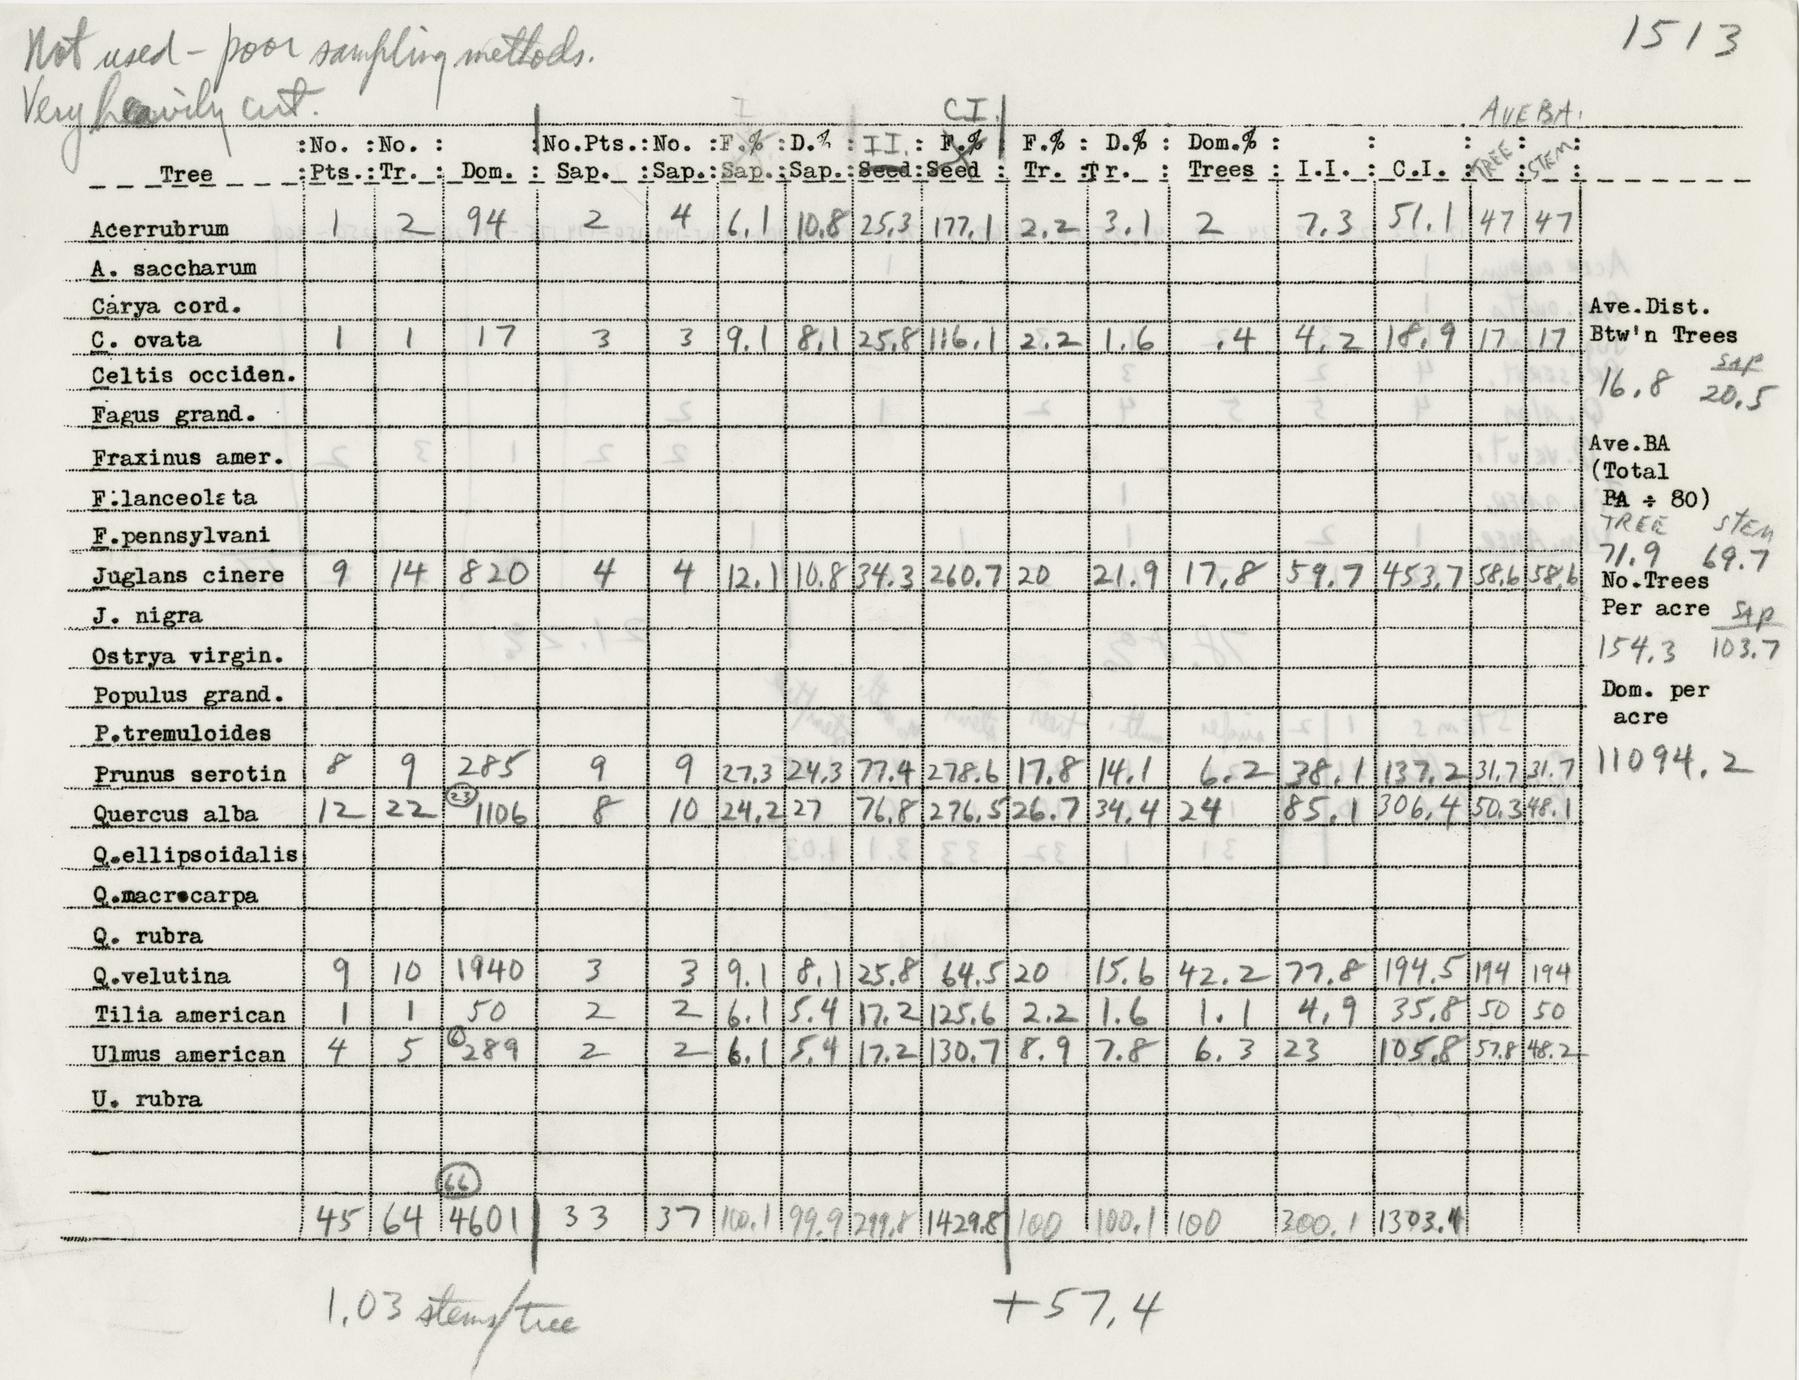 Not used - poor sampling methods.
1513
Very heavily cut.
I C.I. AVE BA.
:No. :No. : :No.Pts.:No. :F.% :D.% : II. : F.% : F.% : D.% : Dom.% : : : : :
Tree :Pts.:Tr. : Dom. : Sap. :Sap.:Sap.:Sap.:Seed:Seed : Tr. :Tr. : Trees : I.I. : C.I. : TREE : STEM :
Acerrubrum 1 2 94 2 4 6.1 10.8 25.3 177.1 2.2 3.1 2 7.3 51.1 47 47
A. saccharum
Carya cord. Ave.Dist.
C. ovata 1 1 17 3 3 9.1 8.1 25.8 116.1 2.2 1.6 .4 4.2 18.9 17 17 Btw'n Trees
Celtis occiden. SAP
16.8 20.5
Fagus grand.
Fraxinus amer. Ave.BA
(Total
F.lanceolata BA ÷ 80)
F.pennsylvani TREE STEM
71.9 69.7
Juglans cinere 9 14 820 4 4 12.1 10.8 34.3 260.7 20 21.9 17.8 59.7 453.7 58.6 58.6 No.Trees
J. nigra Per acre SAP
Ostrya virgin. 154.3 103.7
Populus grand. Dom. per
P.tremuloides acre
Prunus serotin 8 9 285 9 9 27.3 24.3 77.4 278.6 17.8 14.1 6.2 38.1 137.2 31.7 31.7 11094.2
Quercus alba 12 22 23 1106 8 10 24.2 27 76.8 276.5 26.7 34.4 24 85.1 306.4 50.3 48.1
Q.ellipsoidalis
Q.macrocarpa
Q. rubra
Q.velutina 9 10 1940 3 3 9.1 8.1 25.8 64.5 20 15.6 42.2 77.8 194.5 194 194
Tilia american 1 1 50 2 2 6.1 5.4 17.2 125.6 2.2 1.6 1.1 4.9 35.8 50 50
Ulmus american 4 5 6 289 2 2 6.1 5.4 17.2 130.7 8.9 7.8 6.3 23 105.8 57.8 48.2
U. rubra
66
45 64 4601 33 37 100.1 99.9 299.8 1429.8 100 100.1 100 300.1 1303.4
1.03 stems/tree +57.4